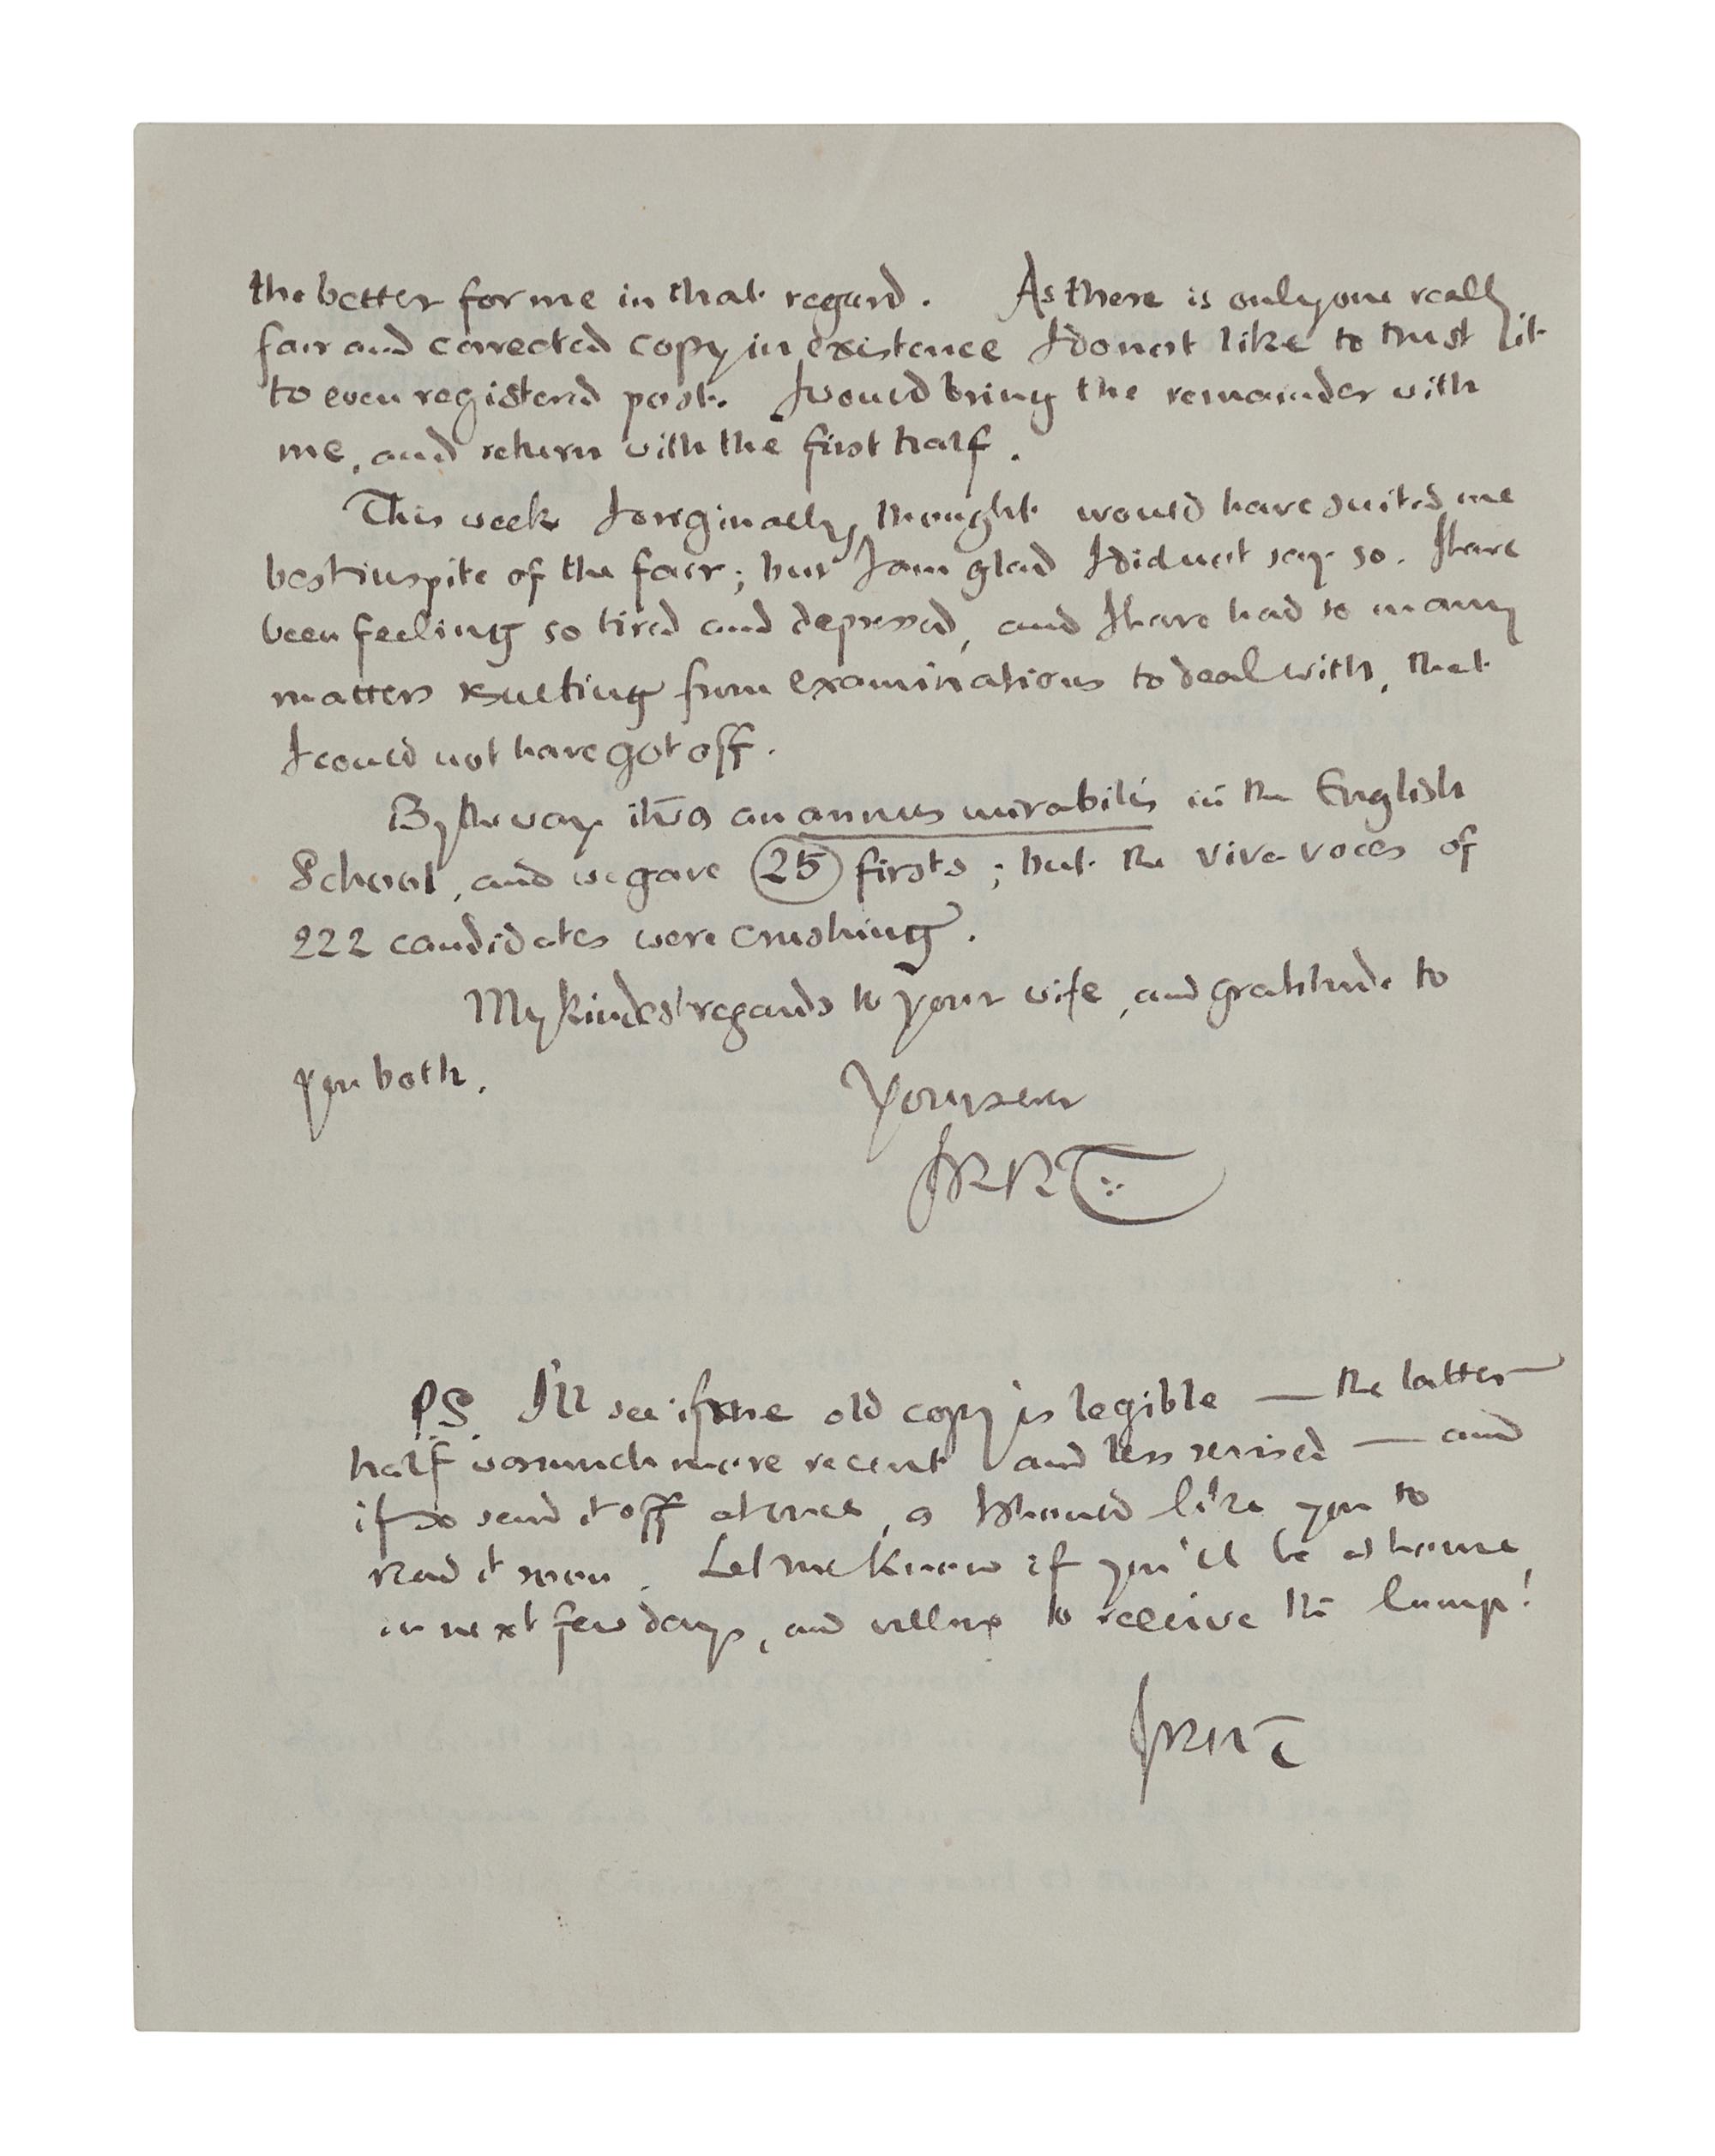 the better for me in that regard. As there is only one really
fair and corrected copy in existence I do not like to trust it
to even registered post. I would bring the remainder with
me, and return with the first half.
This week I originally thought would have suited me
best in spite of the fair; but I am glad I did not say so. I have
been feeling so tired and depressed, and I have had so many
matters resulting from examinations to deal with, that
I could not have got off.
By the way it is an annus mirabilis in the English
School, and we gave 25 firsts; but the viva voces of
222 candidates were crushing.
My kindest regards to your wife, and gratitude to
you both.
Yours ever
JRRT
PS. I'll see if the old copy is legible — the latter
half was much more recent and less revised — and
if so send it off at once, as I should like you to
read it soon. Let me know if you'll be at home
in next few days, and willing to receive the lump!
JRRT